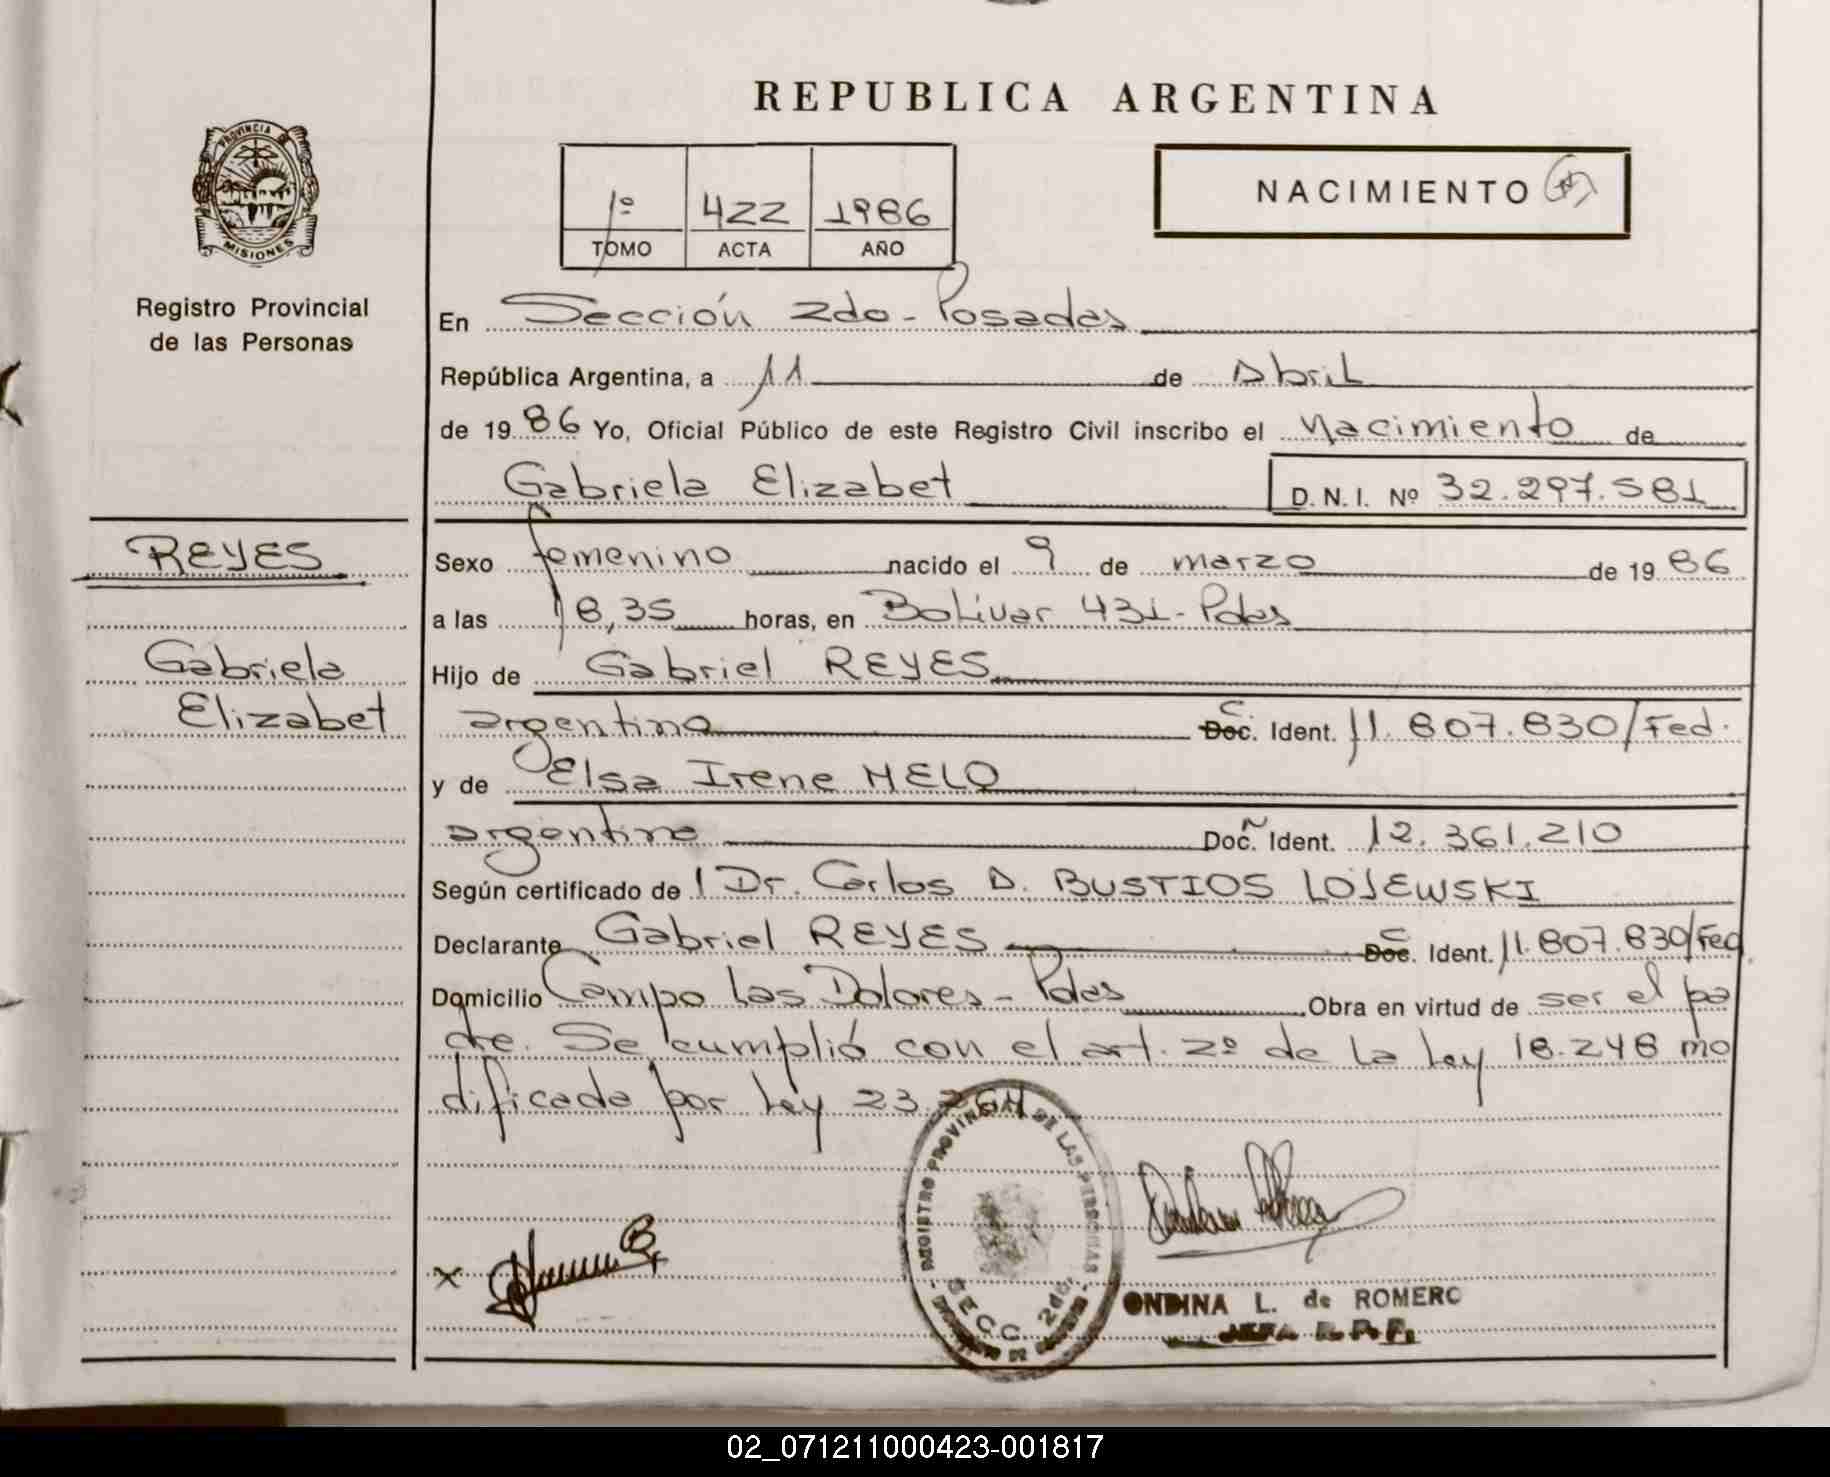 REPUBLICA ARGENTINA
PROVINCIA DE
MISIONES
Registro Provincial
de las Personas
1º 422 1986
TOMO ACTA AÑO
NACIMIENTO
En Sección 2do - Posadas
República Argentina, a 11 de Abril
de 1986 Yo, Oficial Público de este Registro Civil inscribo el Nacimiento de
Gabriela Elizabet D.N.I. Nº 32.297.581
REYES
Gabriela
Elizabet
Sexo femenino nacido el 9 de marzo de 1986
a las 18,35 horas, en Bolívar 431 - Pdas
Hijo de Gabriel REYES
argentino C. Doc. Ident. 11.807.830/Fed.
y de Elsa Irene MELO
argentina Doc. Ident. 12.361.210
Según certificado de Dr. Carlos D. BUSTIOS LOJEWSKI
Declarante Gabriel REYES C Doc. Ident. 11.807.830/Fed
Domicilio Campo Las Dolores - Pdas Obra en virtud de ser el pa
dre. Se cumplió con el art. 2º de la Ley 18.248 mo
dificada por Ley 23.264
REGISTRO PROVINCIAL DE LAS PERSONAS
SECC. 2do.
X
ONDINA L. de ROMERO
JEFA R. P. P.
02_071211000423-001817